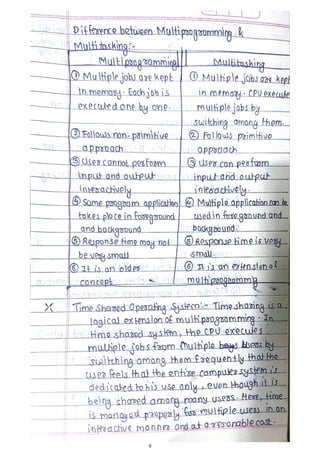 Difference between Multiprogramming &
Multitasking:-
Multiprogramming
① Multiple jobs are kept
in memory. Each job is
executed one by one.
② Follows non-primitive
approach
③ User cannot perform
input and output
interactively
④ Same program application
takes place in foreground
and background
⑤ Response time may not
be very small
⑥ It is an older
concept
Multitasking
① Multiple jobs are kept
in memory. CPU execute
multiple jobs by
switching among them.
② Follows primitive
approach
③ User can perform
input and output
interactively.
④ Multiple application can be
used in foreground and
background.
⑤ Response time is very
small
⑥ It is an extension of
multiprogramming
X Time Shared Operating System:- Time sharing is a
logical extension of multiprogramming. In
time shared system, the CPU executes
multiple jobs from multiple users by
switching among them frequently that the
user feels that the entire computer system is
dedicated to his use only, even though it is
being shared among many users. Here, time
is managed properly for multiple users in an
interactive manner and at a resonable cost.
9